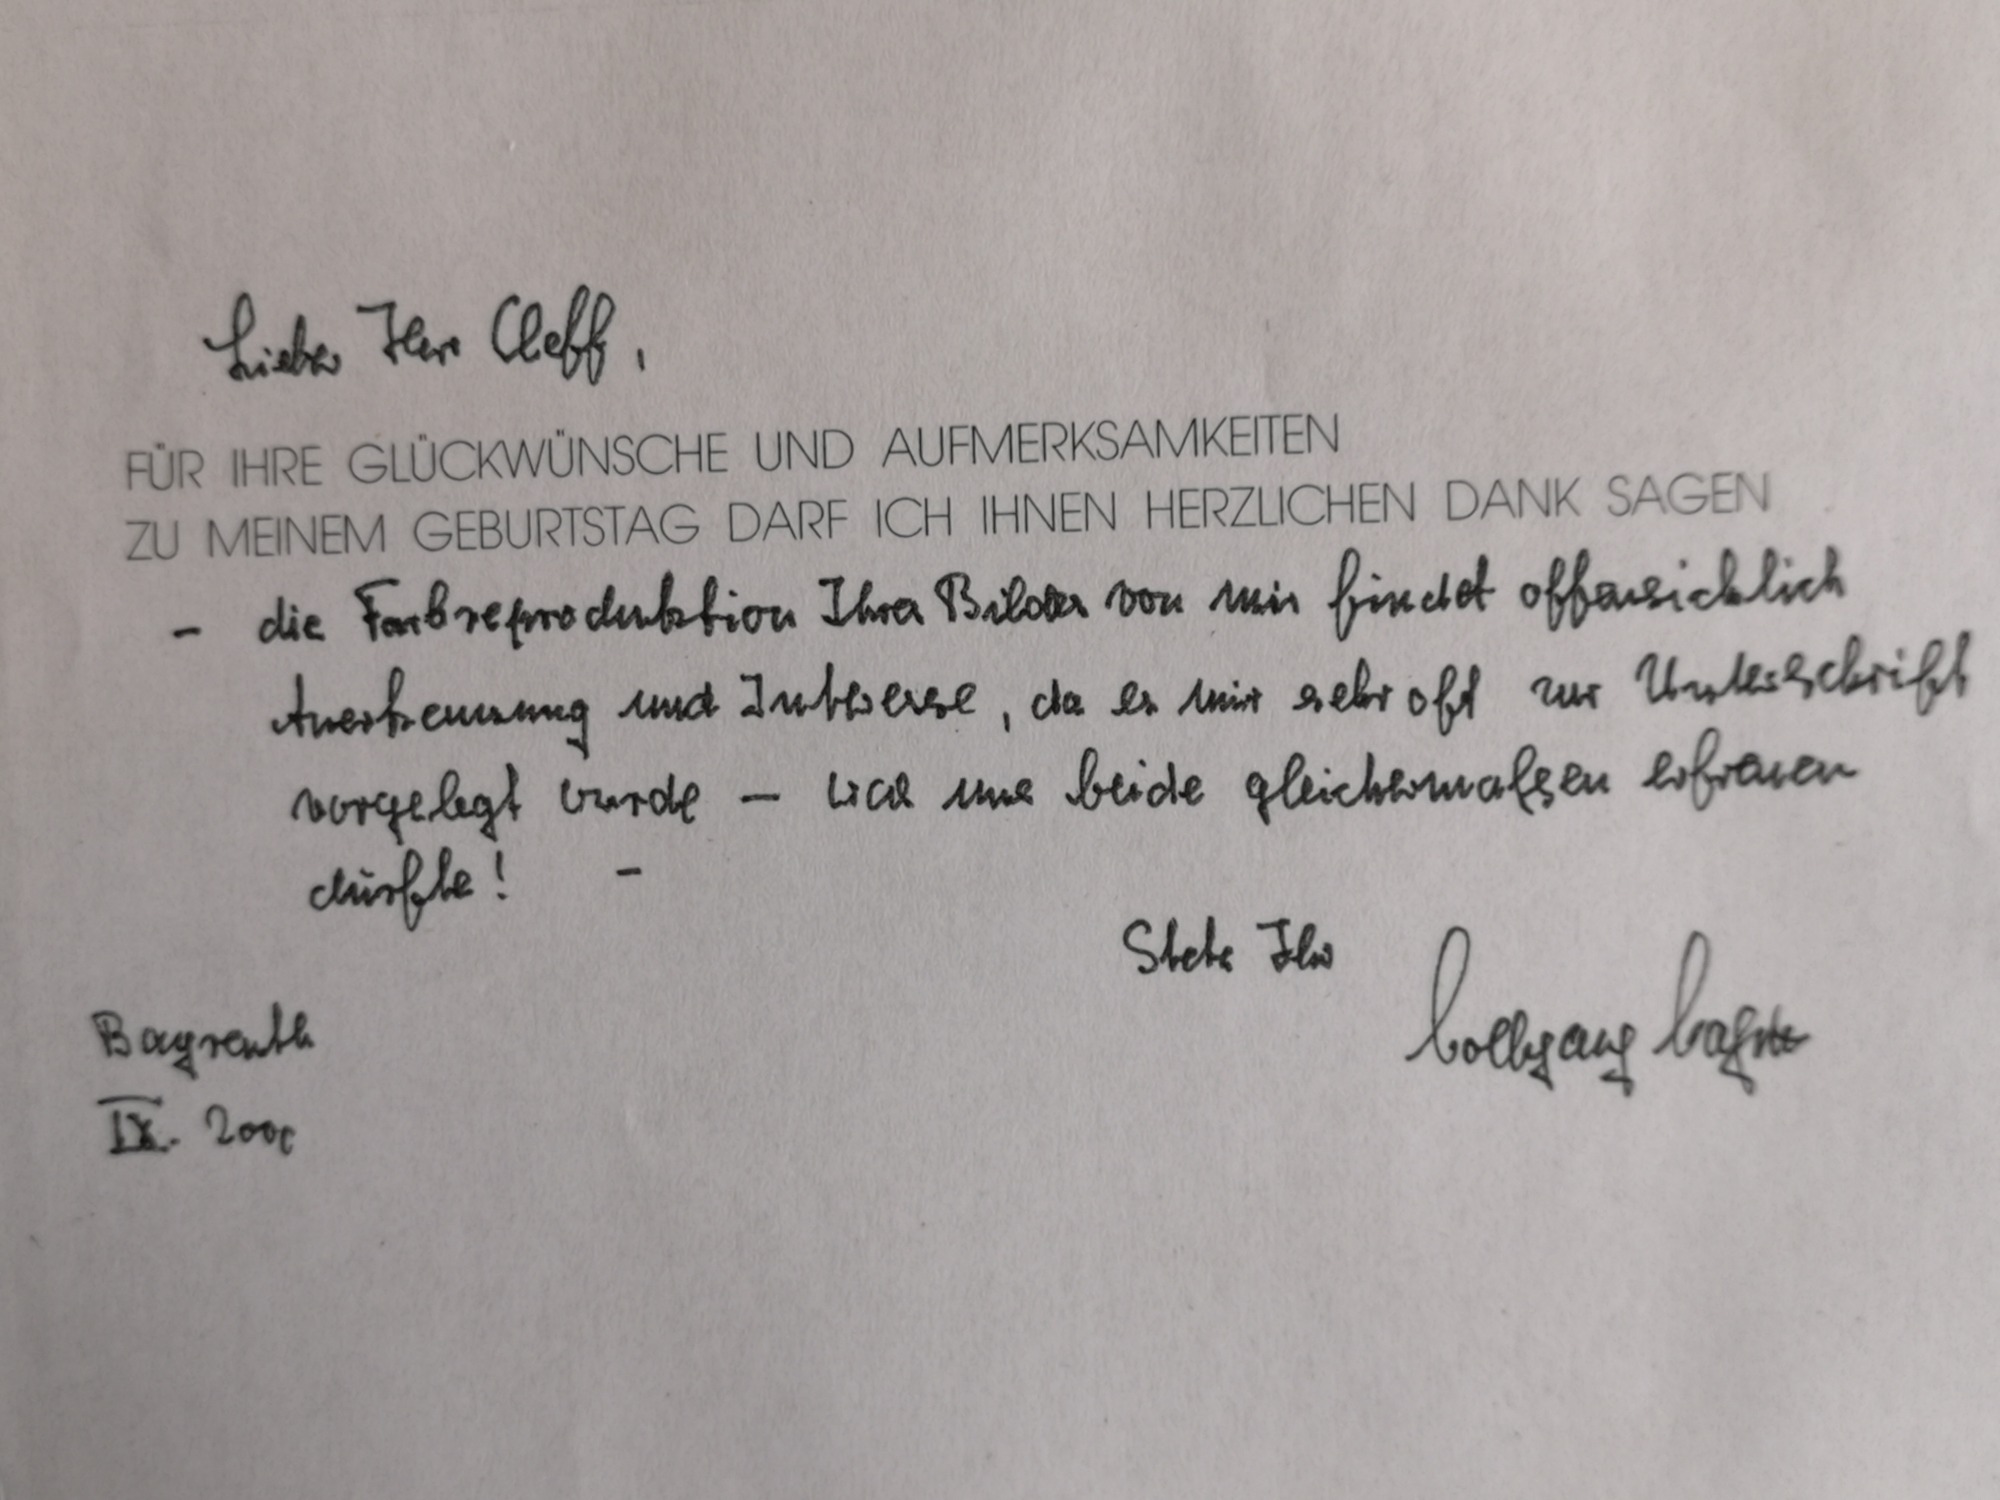 Lieber Herr Cleff,
FÜR IHRE GLÜCKWÜNSCHE UND AUFMERKSAMKEITEN
ZU MEINEM GEBURTSTAG DARF ICH IHNEN HERZLICHEN DANK SAGEN
- die Farbreproduktion Ihres Bildes von mir findet offensichtlich
Anerkennung und Interesse, da es mir sehr oft zur Unterschrift
vorgelegt wurde – was uns beide gleichermaßen erfreuen
dürfte! -
Stets Ihr
Wolfgang Wagner
Bayreuth
IX. 2000